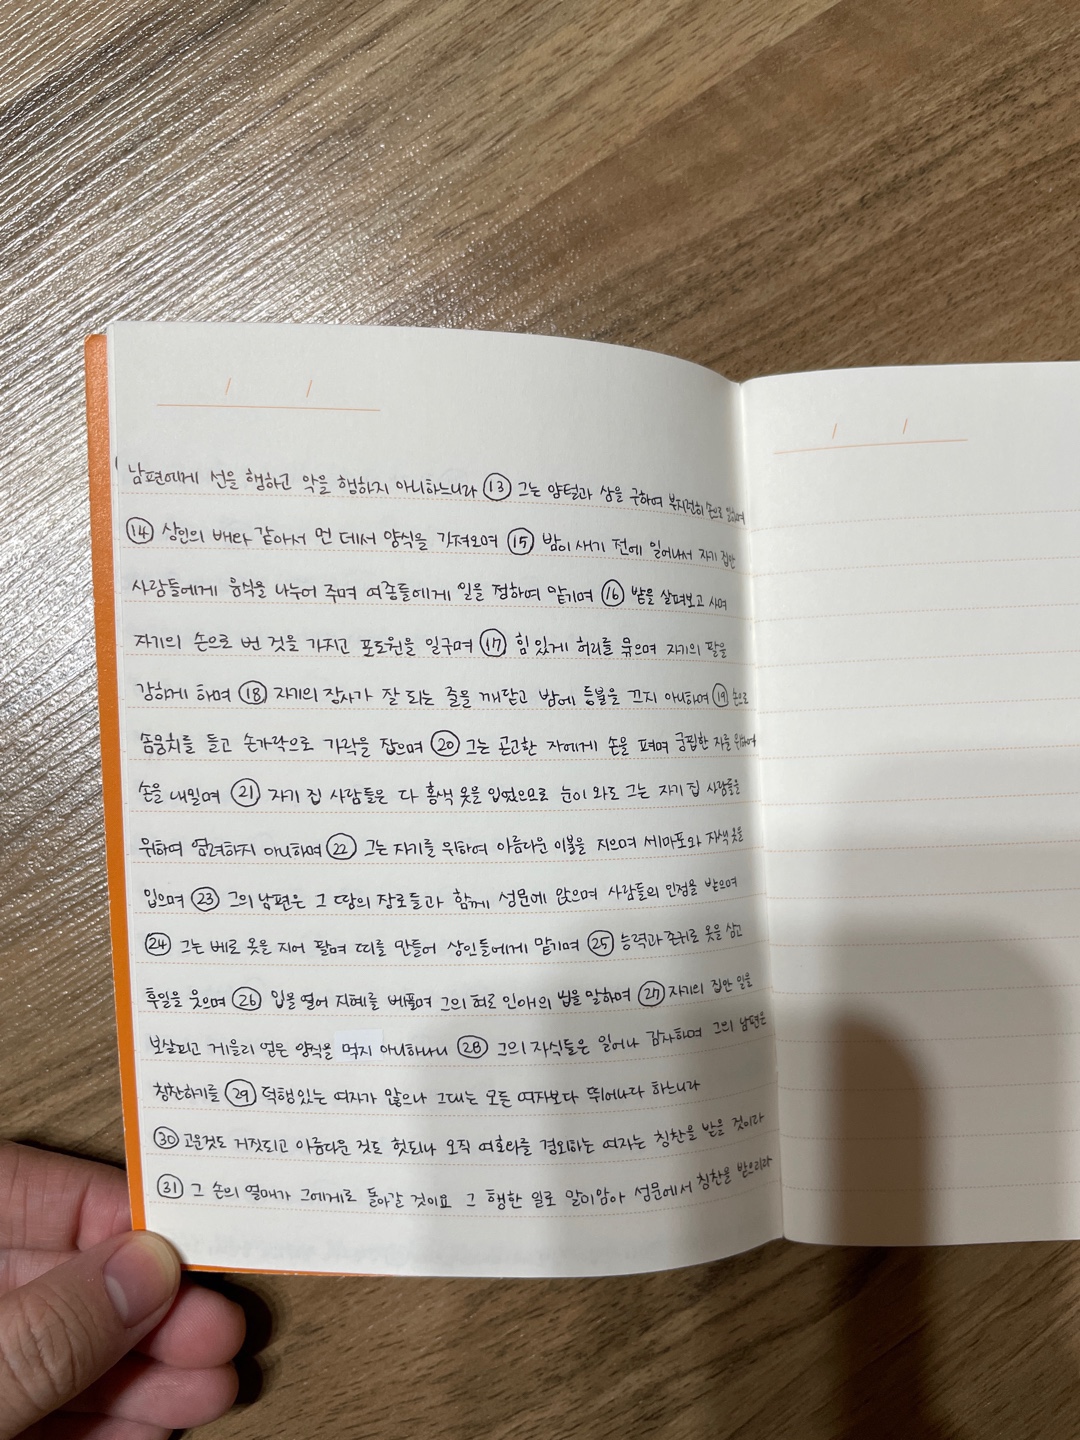 남편에게 선을 행하고 악을 행하지 아니하느니라 ⑬ 그는 양털과 삼을 구하여 부지런히 손으로 일하며
⑭ 상인의 배와 같아서 먼 데서 양식을 가져오며 ⑮ 밤이 새기 전에 일어나서 자기 집안
사람들에게 음식을 나누어 주며 여종들에게 일을 정하여 맡기며 ⑯ 밭을 살펴보고 사며
자기의 손으로 번 것을 가지고 포도원을 일구며 ⑰ 힘 있게 허리를 묶으며 자기의 팔을
강하게 하며 ⑱ 자기의 장사가 잘 되는 줄을 깨닫고 밤에 등불을 끄지 아니하며 ⑲ 손으로
솜뭉치를 들고 손가락으로 가락을 잡으며 ⑳ 그는 곤고한 자에게 손을 펴며 궁핍한 자를 위하여
손을 내밀며 ㉑ 자기 집 사람들은 다 홍색 옷을 입었으므로 눈이 와도 그는 자기 집 사람들을
위하여 염려하지 아니하며 ㉒ 그는 자기를 위하여 아름다운 이불을 지으며 세마포와 자색 옷을
입으며 ㉓ 그의 남편은 그 땅의 장로들과 함께 성문에 앉으며 사람들의 인정을 받으며
㉔ 그는 베로 옷을 지어 팔며 띠를 만들어 상인들에게 맡기며 ㉕ 능력과 존귀로 옷을 삼고
후일을 웃으며 ㉖ 입을 열어 지혜를 베풀며 그의 혀로 인애의 법을 말하며 ㉗ 자기의 집안 일을
보살피고 게을리 얻은 양식을 먹지 아니하나니 ㉘ 그의 자식들은 일어나 감사하며 그의 남편은
칭찬하기를 ㉙ 덕행 있는 여자가 많으나 그대는 모든 여자보다 뛰어나다 하느니라
㉚ 고운것도 거짓되고 아름다운 것도 헛되나 오직 여호와를 경외하는 여자는 칭찬을 받을 것이라
㉛ 그 손의 열매가 그에게로 돌아갈 것이요 그 행한 일로 말미암아 성문에서 칭찬을 받으리라